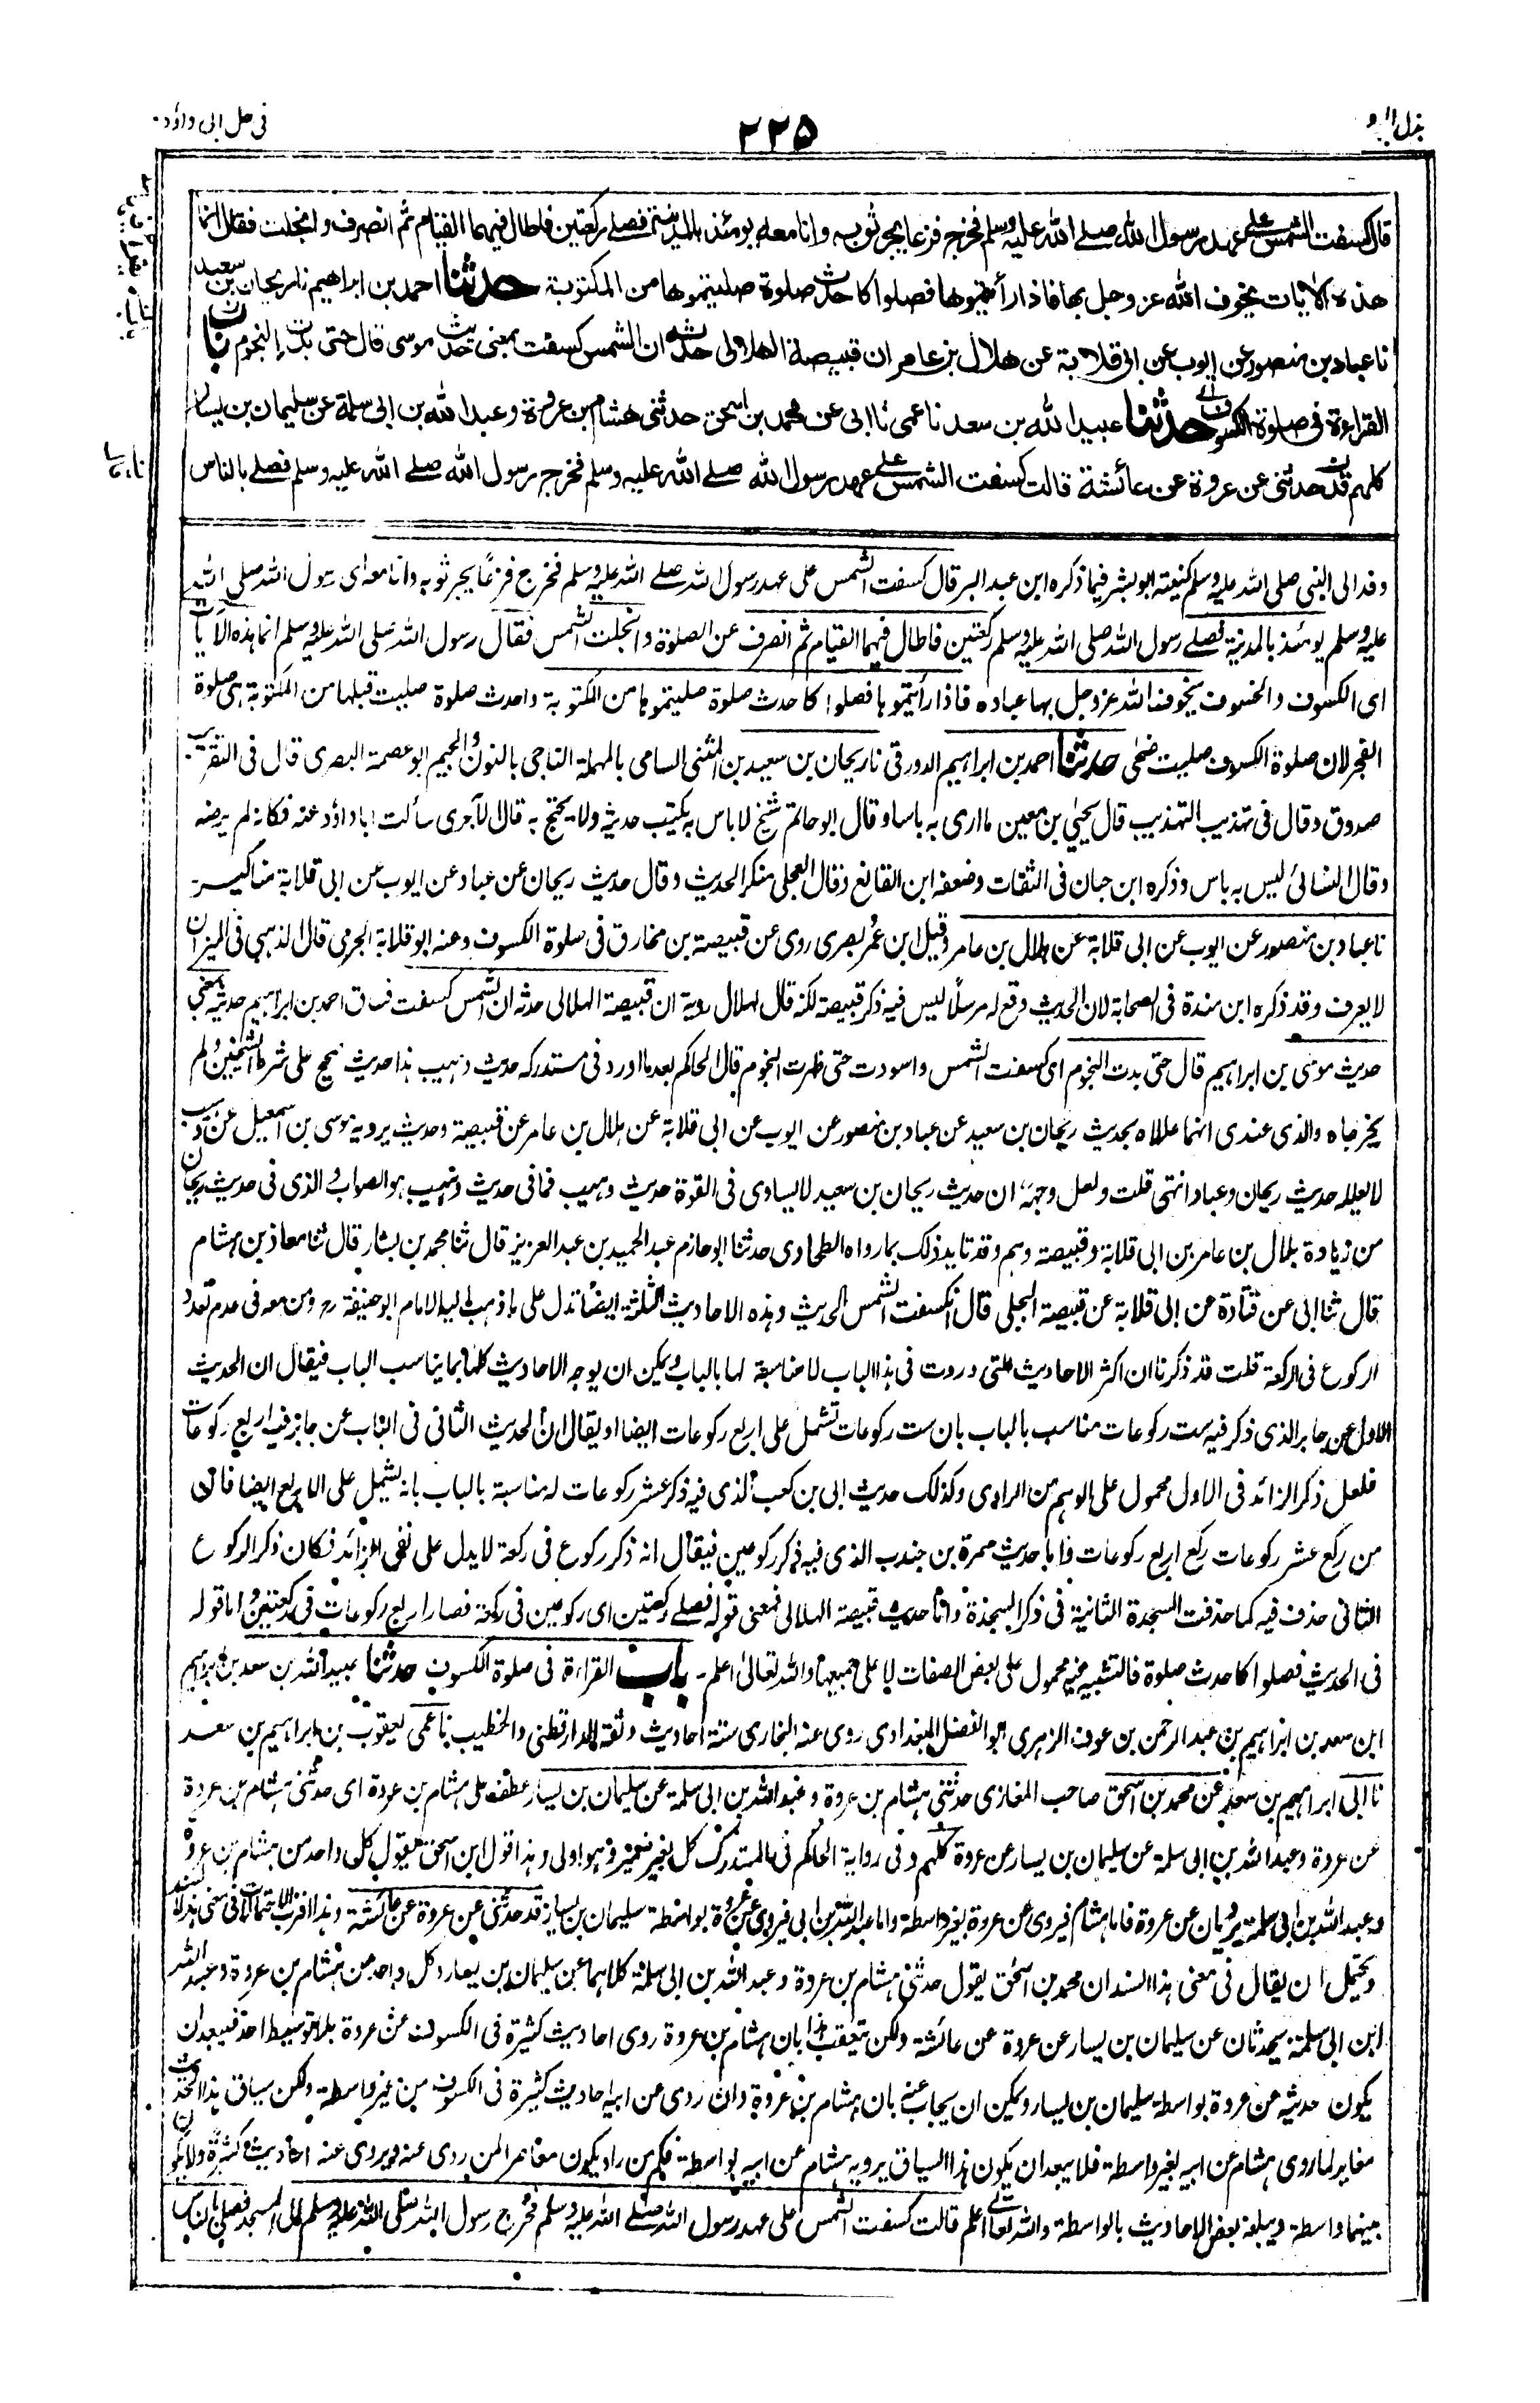 بذل المجهود
٢٢٥
فی حل ابی داؤد
قال کسفت الشمس علی عهد رسول الله صلے الله علیه وسلم فخرج فزعا یجر ثوبه وانا معه یومئذ بالمدینة فصلے رکعتین فاطال فیهما القیام ثم انصرف وانجلت فقال انما
هذه الایات یخوف الله عز وجل بها فاذا رأیتموها فصلوا کاحدث صلوة صلیتموها من المکتوبة حدثنا احمد بن ابراهیم نا ریحان بن سعید
نا عباد بن منصور عن ایوب عن ابی قلابة عن هلال بن عامر ان قبیصة الهلالی حدثه ان الشمس کسفت بمعنی حدیث موسی قال حتی بدت النجوم باب
القراءة فی صلوة الکسوف حدثنا عبید الله بن سعد نا عمی نا ابی عن محمد بن اسحق حدثنی هشام بن عروة وعبد الله بن ابی سلمة عن سلیمان بن یسار
کلهم قد حدثنی عن عروة عن عائشة قالت کسفت الشمس علی عهد رسول الله صلے الله علیه وسلم فخرج رسول الله صلے الله علیه وسلم فصلے بالناس
وفد الی النبی صلی الله علیه وسلم کنیته ابو بشر فیما ذکره ابن عبد البر قال کسفت الشمس علی عهد رسول الله صلے الله علیه وسلم فخرج فزعاً یجر ثوبه وانا معه ای رسول الله صلی الله
علیه وسلم یومئذ بالمدینة فصلے رسول الله صلی الله علیه وسلم رکعتین فاطال فیهما القیام ثم انصرف عن الصلوة وانجلت الشمس فقال رسول الله صلی الله علیه وسلم انما هذه الآیات
ای الکسوف والخسوف یخوف الله عز وجل بها عباده فاذا رأیتموها فصلوا کاحدث صلوة صلیتموها من المکتوبة واحدث صلوة صلیت قبلها من المکتوبة هی صلوة
الفجر لان صلوة الکسوف صلیت ضحی حدثنا احمد بن ابراهیم الدورقی نا ریحان بن سعید بن المثنی السامی بالمهملة الناجی بالنون والجیم ابو عصمة البصری قال فی التقریب
صدوق وقال فی تهذیب التهذیب قال یحیی بن معین ما اری به باسا وقال ابو حاتم شیخ لا باس به یکتب حدیثه ولا یحتج به قال الآجری سألت ابا داؤد عنه فکانه لم یرضه
وقال النسائی لیس به باس وذکره ابن حبان فی الثقات وضعفه ابن القانع وقال العجلی منکر الحدیث وقال حدیث ریحان عن عباد عن ایوب عن ابی قلابة مناکیر
نا عباد بن منصور عن ایوب عن ابی قلابة عن هلال بن عامر وقیل ابن عمر بصری روی عن قبیصة بن مخارق فی صلوة الکسوف وعنه ابو قلابة الجرمی قال الذهبی فی المیزان
لا یعرف وقد ذکره ابن مندة فی الصحابة لان الحدیث وقع له مرسلاً لیس فیه ذکر قبیصة لکنه قال لهلال رویة ان قبیصة الهلالی حدثه ان الشمس کسفت فساق احمد بن ابراهیم حدیثه بمعنی
حدیث موسی بن ابراهیم قال حتی بدت النجوم ای کسفت الشمس واسودت حتی ظهرت النجوم قال الحاکم بعد ما اورد فی مستدرکه حدیث وهیب هذا حدیث صحیح علی شرط الشیخین ولم
یخرجاه والذی عندی انهما عللاه بحدیث ریحان بن سعید عن عباد بن منصور عن ایوب عن ابی قلابة عن هلال بن عامر عن قبیصة وحدیث یرویه موسی بن اسمعیل عن وهیب
لا یعلله حدیث ریحان وعباد انتهی قلت ولعل وجهه ان حدیث ریحان بن سعید لا یساوی فی القوة حدیث وهیب فما فی حدیث وهیب هو الصواب والذی فی حدیث ریحان
من زیادة هلال بن عامر بن ابی قلابة وقبیصة وهم وقد تاید ذلک بما رواه الطحاوی حدثنا ابو حازم عبد الحمید بن عبد العزیز قال ثنا محمد بن بشار قال ثنا معاذ بن هشام
قال ثنا ابی عن قتادة عن ابی قلابة عن قبیصة البجلی قال انکسفت الشمس الحدیث وهذه الاحادیث الثلثة ایضا تدل علی ما ذهب الیه الامام ابو حنیفة رح ومن معه فی عدم تعدد
الرکوع فی الرکعة قلت قد ذکرنا ان اکثر الاحادیث التی وردت فی هذا الباب لا مناسبة لها بالباب ویمکن ان یوجه الاحادیث کلها بما یناسب الباب فیقال ان الحدیث
الاول عن جابر الذی ذکر فیه ست رکوعات مناسب بالباب بان ست رکوعات تشمل علی اربع رکوعات ایضا او یقال ان الحدیث الثانی فی الباب عن جابر فیه اربع رکوعات
فلعل ذکر الزائد فی الاول محمول علی الوهم من الراوی وکذلک حدیث ابی بن کعب الذی فیه ذکر عشر رکوعات له مناسبة بالباب بانه یشمل علی الاربع ایضا فان
من رکع عشر رکوعات رکع اربع رکوعات واما حدیث سمرة بن جندب الذی فیه ذکر رکوعین فیقال انه ذکر رکوع فی رکعة لا یدل علی نفی الزائد فکان ذکر الرکوع
الثانی حذف فیه کما حذفت السجدة الثانیة فی ذکر السجدة واما حدیث قبیصة الهلالی فمعنی قوله فصلے رکعتین ای رکوعین فی رکعة فصار اربع رکوعات فی رکعتین واما قوله
فی الحدیث فصلوا کاحدث صلوة فالتشبیه فیه محمول علی بعض الصفات لا علی جمیعها والله تعالی اعلم۔ باب القراءة فی صلوة الکسوف حدثنا عبید الله بن سعد بن ابراهیم
ابن سعد بن ابراهیم بن عبد الرحمن بن عوف الزهری ابو الفضل البغدادی روی عنه البخاری ستة احادیث وثقه الدارقطنی والخطیب نا عمی یعقوب بن ابراهیم بن سعد
نا ابی ابراهیم بن سعد عن محمد بن اسحق صاحب المغازی حدثنی هشام بن عروة وعبد الله بن ابی سلمة عن سلیمان بن یسار عطف علی هشام بن عروة ای حدثنی هشام بن عروة
عن عروة وعبد الله بن ابی سلمة عن سلیمان بن یسار عن عروة کلهم وفی روایة الحاکم فی المستدرک کل بغیر ضمیر وهو اولی وهذا قول ابن اسحق فیقول کل واحد من هشام بن عروة
وعبد الله بن ابی سلمة یرویان عن عروة فاما هشام فیروی عن عروة بغیر واسطة واما عبد الله بن ابی فیروی عن عروة بواسطة سلیمان بن یسار قد حدثنی عن عروة عن عائشة وهذا اقرب الاحتمالات فی معنی هذا السند
ویحتمل ان یقال فی معنی هذا السند ان محمد بن اسحق یقول حدثنی هشام بن عروة وعبد الله بن ابی سلمة کلاهما عن سلیمان بن یسار وکل واحد من هشام بن عروة وعبد الله
ابن ابی سلمة یحدثان عن سلیمان بن یسار عن عروة عن عائشة ولکن تعقب هذا بان هشام بن عروة روی احادیث کثیرة فی الکسوف عن عروة بلا توسیط احد فیبعد ان
یکون حدیثه عن عروة بواسطة سلیمان بن یسار ویمکن ان یجاب عنه بان هشام بن عروة وان روی عن ابیه احادیث کثیرة فی الکسوف من غیر واسطة ولکن سیاق هذا الحدیث
مغایر لما روی هشام عن ابیه بغیر واسطة فلا یبعد ان یکون هذا السیاق یرویه هشام عن ابیه بواسطة فکم من راو یکون معاصرا لمن روی عنه ویروی عنه احادیث کثیرة ولا یکون
بینهما واسطة ویبلغه بعض الاحادیث بالواسطة والله تعالی اعلم قالت کسفت الشمس علی عهد رسول الله صلے الله علیه وسلم فخرج رسول الله صلی الله علیه وسلم الی المسجد فصلی بالناس